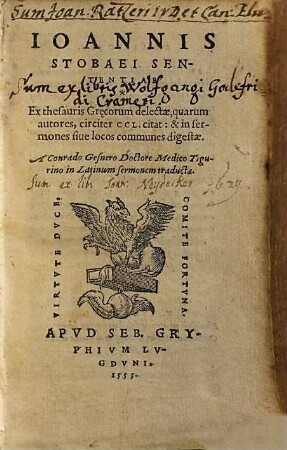 Sum Joan:
IOANNIS
STOBAEI SEN-
TENTIAE
Sum ex libris Wolfgangi Godefri
di Crameri.
Ex thesauris Græcorum delectæ, quarum
autores, circiter CCL. citat: & in ser-
mones siue locos communes digestæ.
A Conrado Gesnero Doctore Medico Tigu-
rino in Latinum sermonem traductæ.
Sum ex lib: Joan:
VIRTVTE DVCE,
COMITE FORTVNA.
APVD SEB. GRY-
PHIVM LVG-
DVNI.
1555.